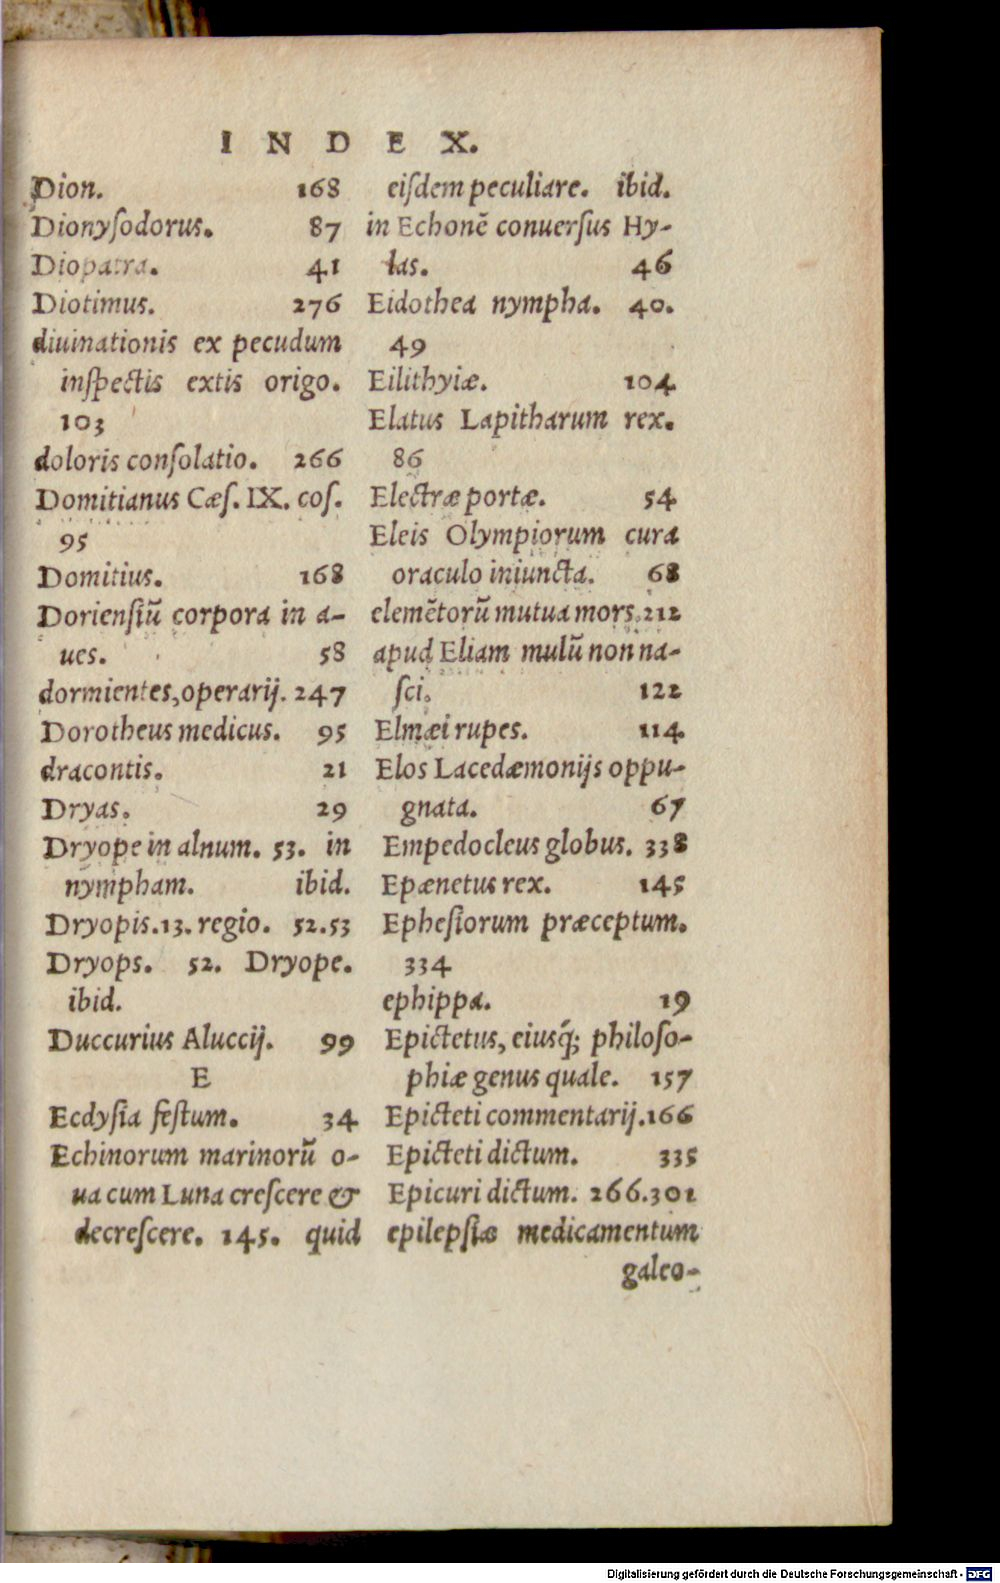 INDEX.
Dion. 168
Dionyſodorus. 87
Diopatra. 41
Diotimus. 276
diuinationis ex pecudum
inſpectis extis origo.
103
doloris conſolatio. 266
Domitianus Cæſ. IX. coſ.
95
Domitius. 168
Dorienſiū corpora in a-
ues. 58
dormientes, operarij. 247
Dorotheus medicus. 95
dracontis. 21
Dryas. 29
Dryope in alnum. 53. in
nympham. ibid.
Dryopis. 13. regio. 52.53
Dryops. 52. Dryope.
ibid.
Duccurius Aluccij. 99
E
Ecdyſia feſtum. 34
Echinorum marinorū o-
ua cum Luna creſcere &
decreſcere. 145. quid
eiſdem peculiare. ibid.
in Echonē conuerſus Hy-
las. 46
Eidothea nympha. 40.
49
Eilithyiæ. 104
Elatus Lapitharum rex.
86
Electræ portæ. 54
Eleis Olympiorum cura
oraculo iniuncta. 68
elemētorū mutua mors. 212
apud Eliam mulū non na-
ſci. 122
Elmæi rupes. 114
Elos Lacedæmonijs oppu-
gnata. 67
Empedocleus globus. 338
Epænetus rex. 145
Epheſiorum præceptum.
334
ephippa. 19
Epictetus, eiusq́; philoſo-
phiæ genus quale. 157
Epicteti commentarij. 166
Epicteti dictum. 335
Epicuri dictum. 266.301
epilepſiæ medicamentum
galeo-
Digitalisierung gefördert durch die Deutsche Forschungsgemeinschaft - DFG